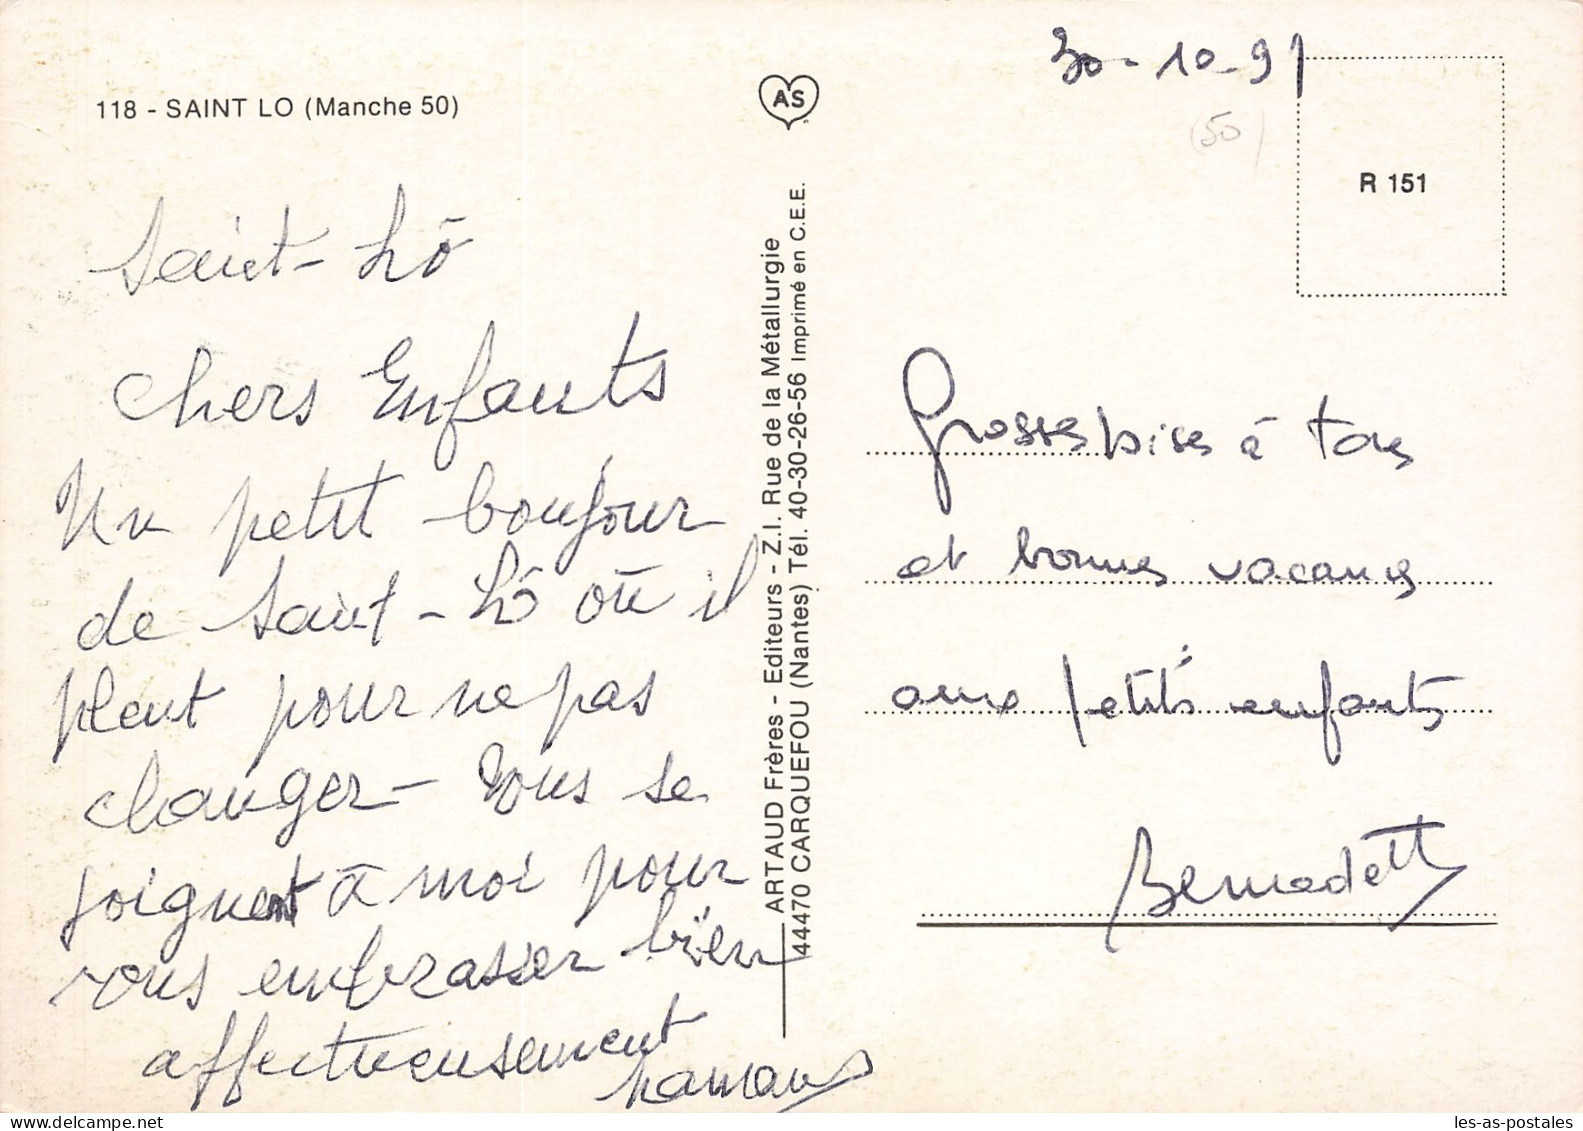 118 - SAINT LO (Manche 50)
Saint-Lô
Chers Enfants
Un petit bonjour
de Saint-Lô où il
pleut pour ne pas
changer - Tous se
joignent à moi pour
vous embrasser bien
affectueusement
Maman
AS
ARTAUD Frères - Editeurs - Z.I. Rue de la Métallurgie
44470 CARQUEFOU (Nantes) Tél. 40-30-26-56 Imprimé en C.E.E.
30-10-91
(50)
R 151
Grosses bises à tous
et bonnes vacances
aux petits enfants
Bernadette
les-as-postales